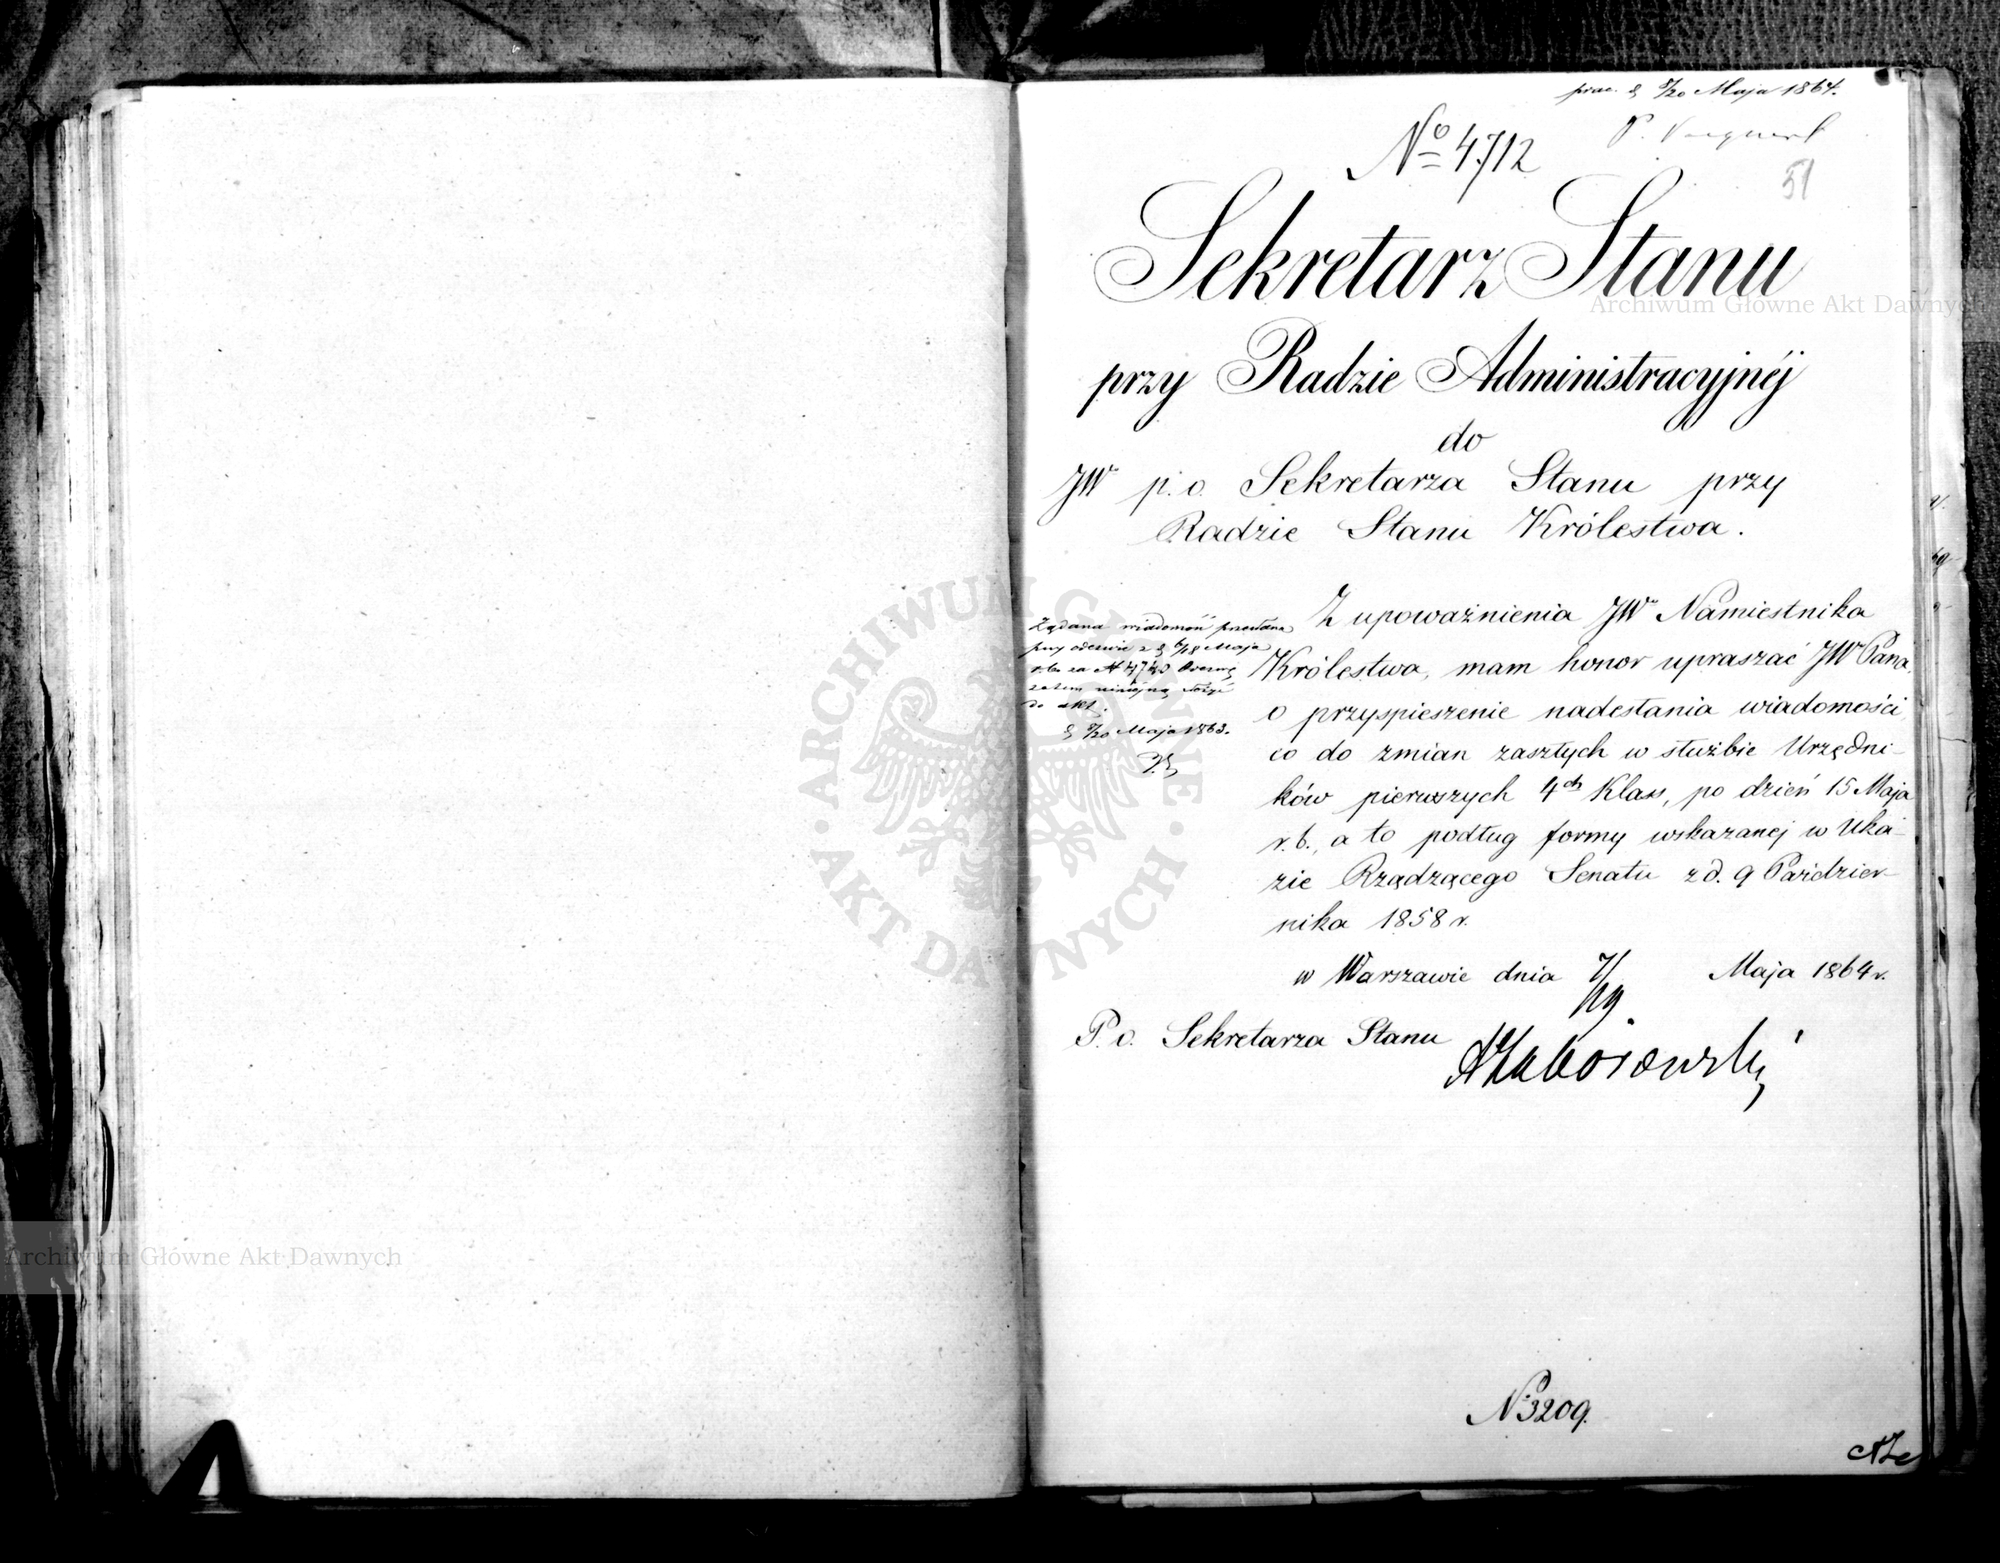 d 8/20 Maja 1864.
P.
№ 4712
51
Sekretarz Stanu
przy Radzie Administracyjnéj
do
JW p. o. Sekretarza Stanu przy
Radzie Stanu Królestwa.
Z upoważnienia JW Namiestnika
Królestwa, mam honor upraszać JW Pana,
o przyspieszenie nadesłania wiadomości
co do zmian zaszłych w służbie Urzędni-
ków pierwszych 4ch Klass, po dzień 15 Maja
r. b., a to podług formy wskazanej w Uka-
zie Rządzącego Senatu z d. 9 Paździer-
nika 1858 r.
w Warszawie dnia 7/19 Maja 1864 r.
P. o. Sekretarza Stanu
Żądana wiadomość przesłana
przy odezwie z d 6/18 Maja
r. b. za № 4740
zatem niniejszą złożyć
do akt.
d 8/20 Maja 1863.
№ 3209.
Archiwum Główne Akt Dawnych
Archiwum Główne Akt Dawnych
ARCHIWUM GŁÓWNE AKT DAWNYCH